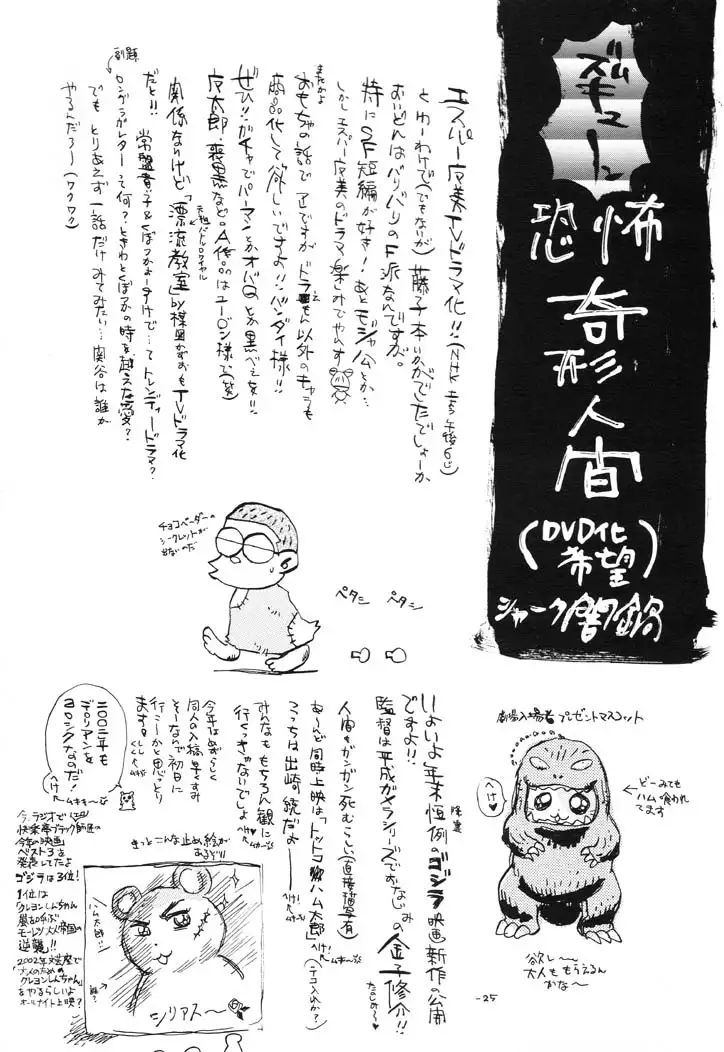 ズムズキューン
恐怖
奇形人間
(DVD化希望)
シャーク闇鍋
エスパー魔美TVドラマ化!!(NHK 土ょう午後6じ)
とゆーわけで(でもないが)藤子本いかがでしたでしょーか
おいどんはバリバリのF派なんですが。
特にSF短編が好き!あとモジャ公とか…
しかしエスパー魔美のドラマ楽しみでやんす
またかよ
おもちゃの話で 正ですが ドラえもん以外のキャラも
商品化して欲しいですよ!!バンダイ様!!
ぜひ!!ガチャでパーマンとかオバQとか黒べえを!!
魔太郎、喪黒などのA作品はユージン様で(笑)
元祖バトルロワイヤル
関係ないけど「漂流教室」by楳図かずおもTVドラマ化
だと!!常盤貴子&くぼづかよーすけで…てトレンディードラマ?
副題
ロングラブレターって何?ときわとくぼづかの時を越えた愛?
でも とりあえず一話だけみてみたい…関谷は誰が
やるんだろー(ワクワク)
チョコベーダーの
シークレットが
出ないのだ
ペタシ
ペタシ
劇場入場者プレゼントマスコット
へけ♡
←どーみても
ハム喰われ
てます
欲し〜
大人ももらえるん
かな〜
いよいよ年末恒例のゴジラ映画新作の公開
ですよ!!
監督は平成ガメラシリーズでおなじみの金子修介!!
たのしみ〜♥
人間もガンガン死むらしい(直接描写有)
あーんど同時上映は「トッコ ハム太郎」
こっちは出崎 統だよ
へけ!
みんなももちろん観に
行くっきゃないでしょ
今年はめずらしく
同人の入稿早くすみ
そーなんで初日に
行こーかと思っとり
ます。
二〇〇二年も
デロリアンを
ヨロシクなのだ!
へけ
ムキキ〜
今、ラジオで
快楽亭ブラック師匠の
今年の映画
ベスト3を
発表してたよ
ゴジラは3位!
1位は
クレヨンしんちゃん
嵐を呼ぶ
モーレツ大人帝国の
逆襲!!
2002年文芸座で
「大人のための
クレヨンしんちゃん」
をやるらしいよ
オールナイト上映?
きっとこんな止め絵が
あるぞ!!
ハム太郎…!
誰?
シリアス〜
-25